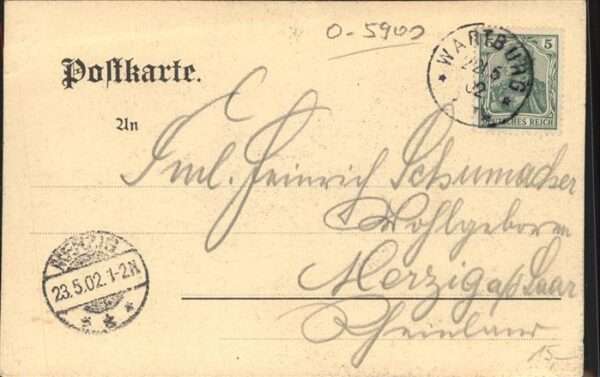 O-5900
WARTBURG
5
DEUTSCHES REICH
Postkarte.
An
Heinrich Schumacher
Wohlgeboren
Merzig a/d Saar
Rheinland
MERZIG
23.5.02.1-2N
15-